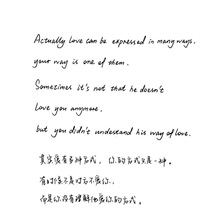 Actually love can be expressed in many ways.
your way is one of them.
Sometimes it's not that he doesn't
love you anymore.
but you didn't understand his way of love.
其实爱有多种方式，你的方式只是一种。
有时候不是对方不爱你，
而是你没有理解他爱你的方式。